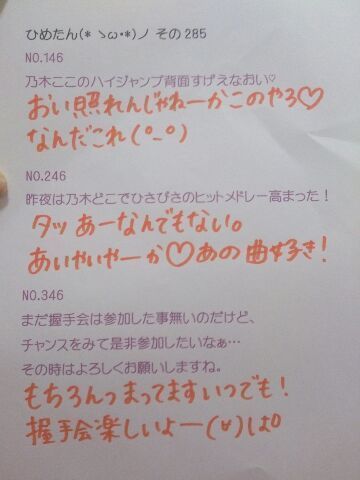 ひめたん(* ゝω・*)ノ その285
NO.146
乃木ここのハイジャンプ背面すげえなおい♡
おい照れんじゃねーかこのやろ♡
なんだこれ(°_°)
NO.246
昨夜は乃木どこでひさびさのヒットメドレー高まった！
タッ あーなんでもない。
あいやいやーか♡あの曲好き！
NO.346
まだ握手会は参加した事無いのだけど、
チャンスをみて是非参加したいなぁ…
その時はよろしくお願いしますね。
もちろんっまってますいつでも！
握手会楽しいよー(∀)